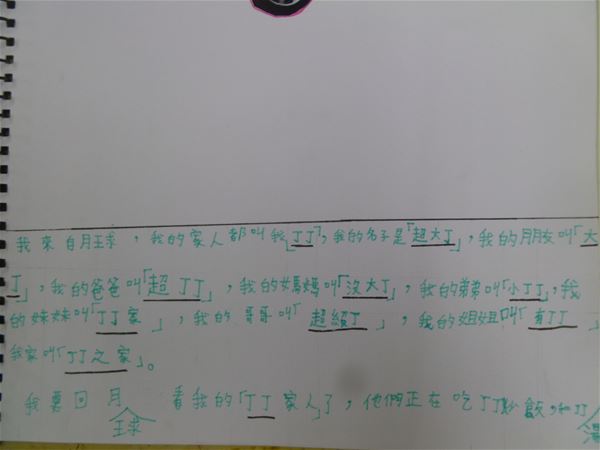 我來自月球，我的家人都叫我「丁丁」，我的名子是「超大丁」，我的朋友叫「大
丁」，我的爸爸叫「超丁丁」，我的媽媽叫「沒大丁」，我的弟弟叫「小丁丁」，我
的妹妹叫「丁丁家」，我的哥哥叫「超級丁」，我的姐姐叫「有丁丁」，
我家叫「丁丁之家」。
我要回月球看我的「丁丁家人」了，他們正在吃丁丁炒飯，和丁丁湯